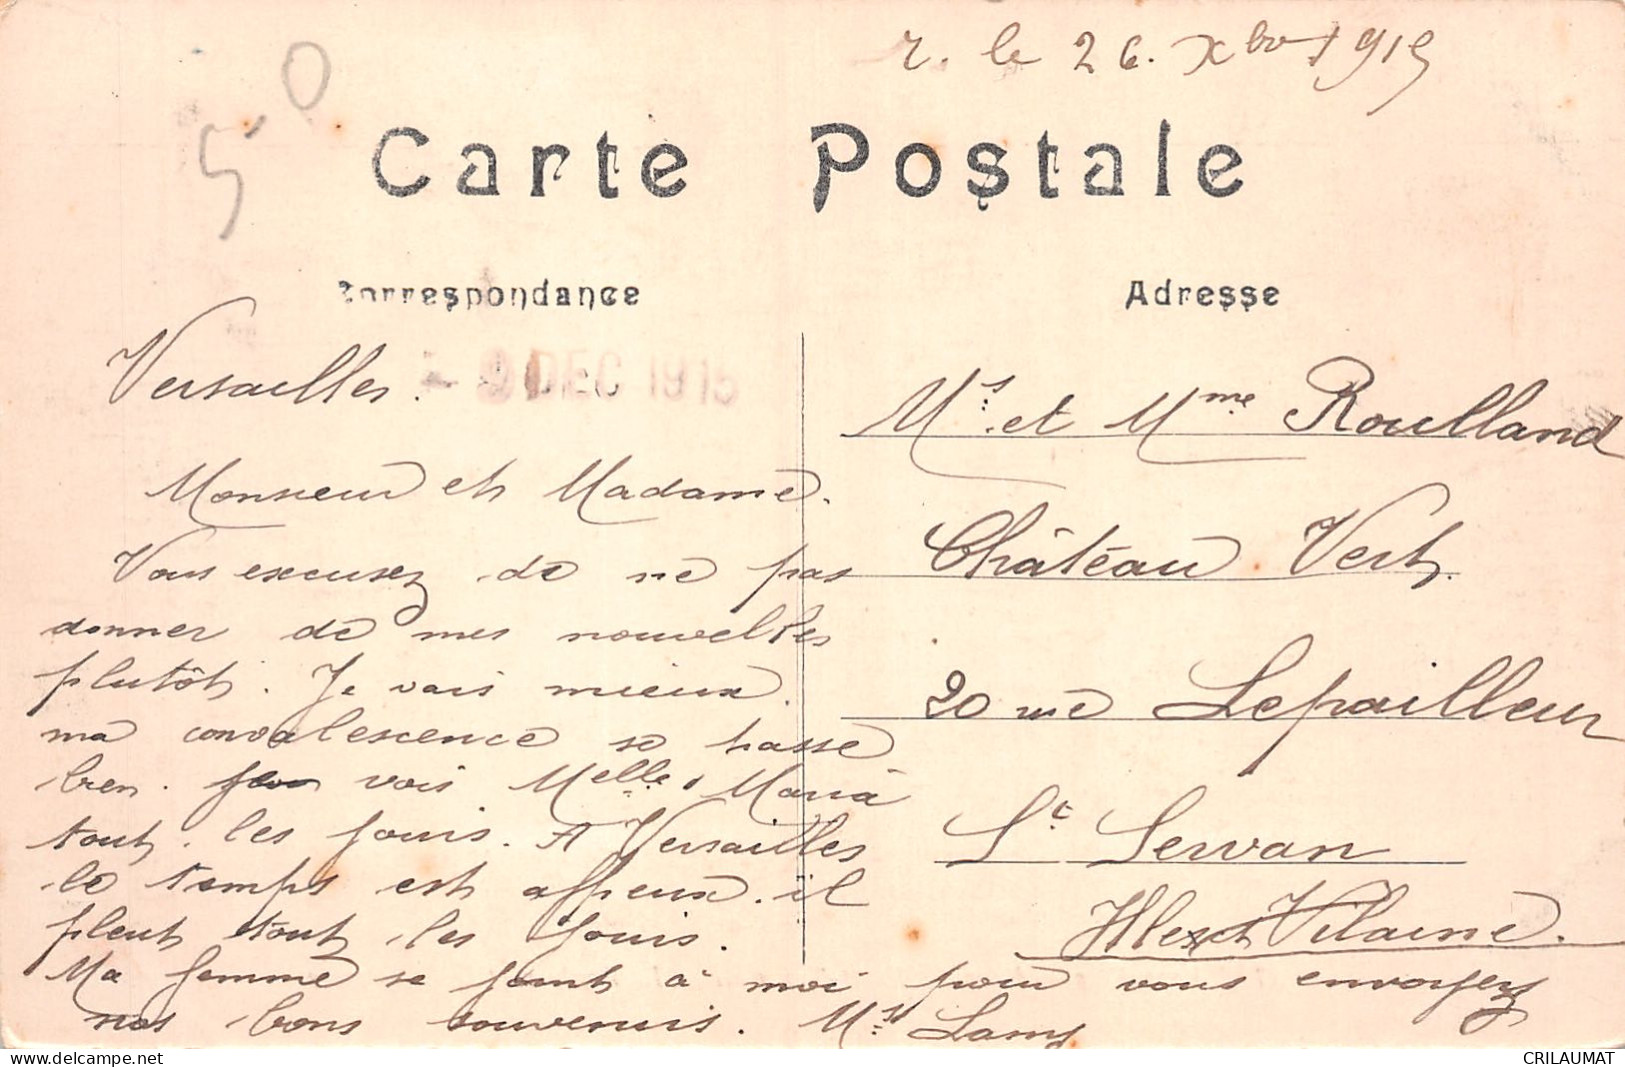 r. le 26. Xbre 1915
50
Carte Postale
Correspondance
Adresse
Versailles. - 9 DEC 1915
Monsieur et Madame.
Vous excusez de ne pas
donner de mes nouvelles
plutôt. Je vais mieux.
ma convalescence se passe
bien. Je vois Melle Maria
tout les jours. A Versailles
le temps est affeux. il
pleut tout les jours.
Ma femme se joint à moi pour vous envoyez
nos bons souvenirs. Mr Lamy
Mr et Mme Roulland
Château Vert
20 rue Lepailleur
St Servan
Ille et Vilaine.
CRILAUMAT